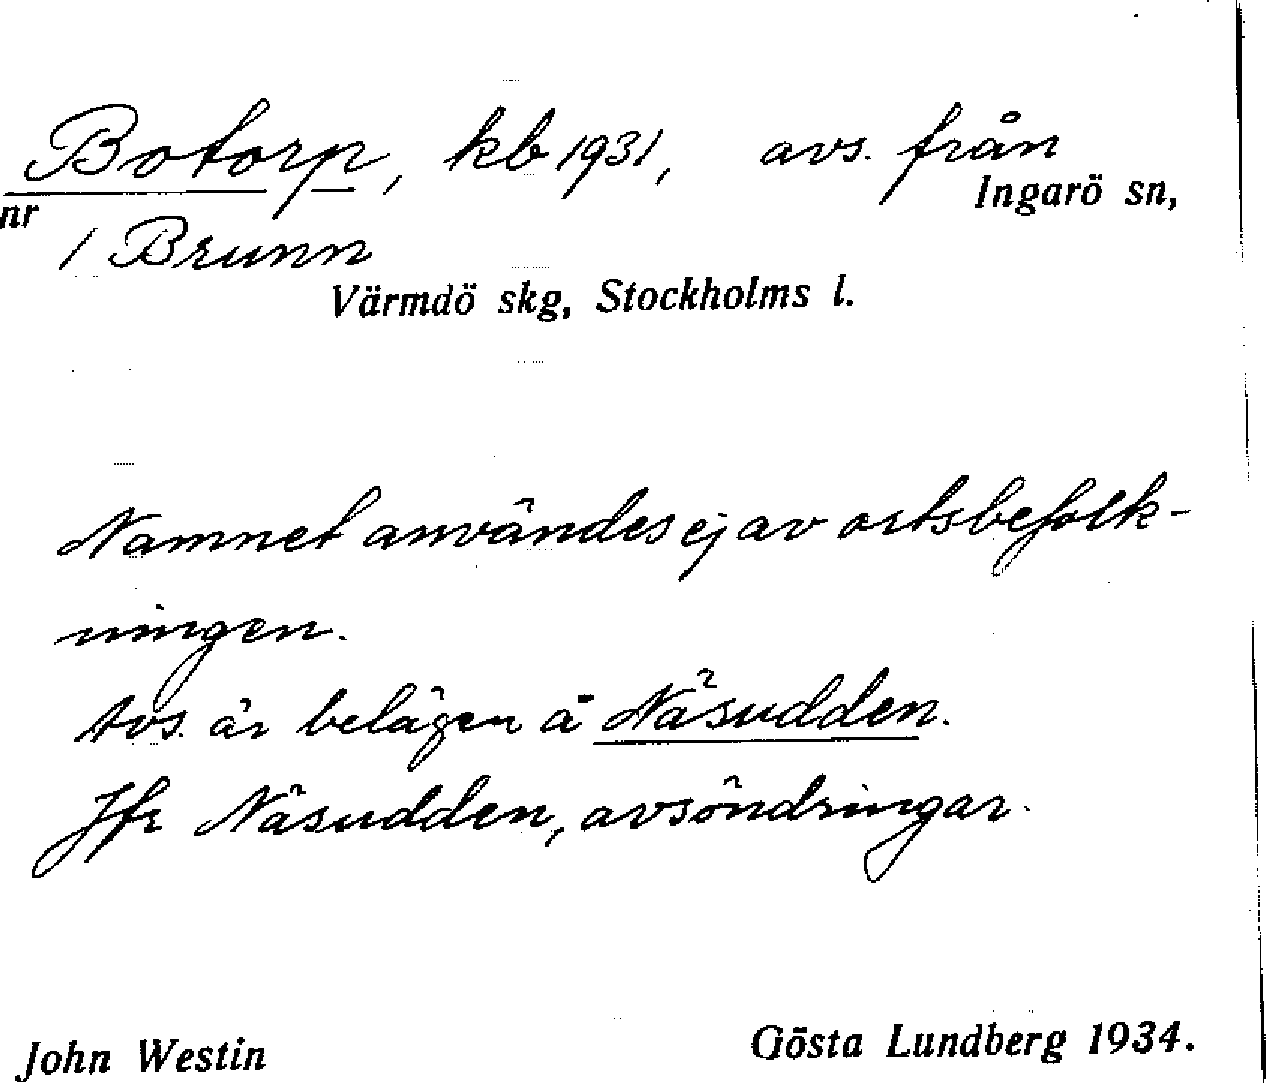 Botorp, kb 1931, avs. från
Ingarö sn,
nr
1 Brunn
Värmdö skg, Stockholms l.
Namnet användes ej av ortsbefolk-
ningen.
Avs. är belägen å Näsudden.
Jfr Näsudden, avsöndringar.
John Westin
Gösta Lundberg 1934.